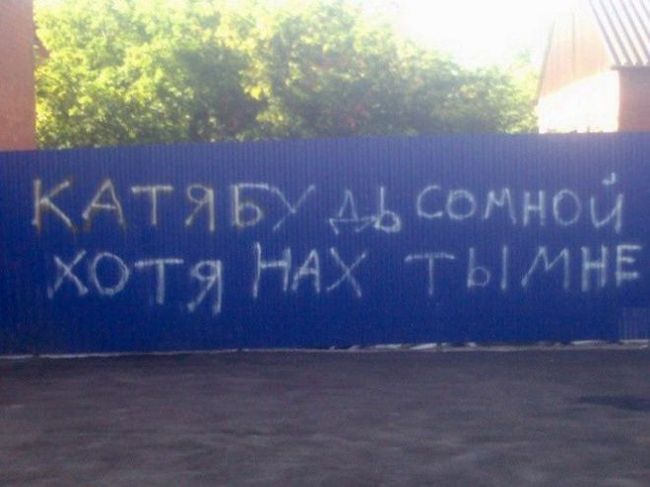 КАТЯ БУДЬ СОМНОЙ
ХОТЯ НАХ ТЫ МНЕ